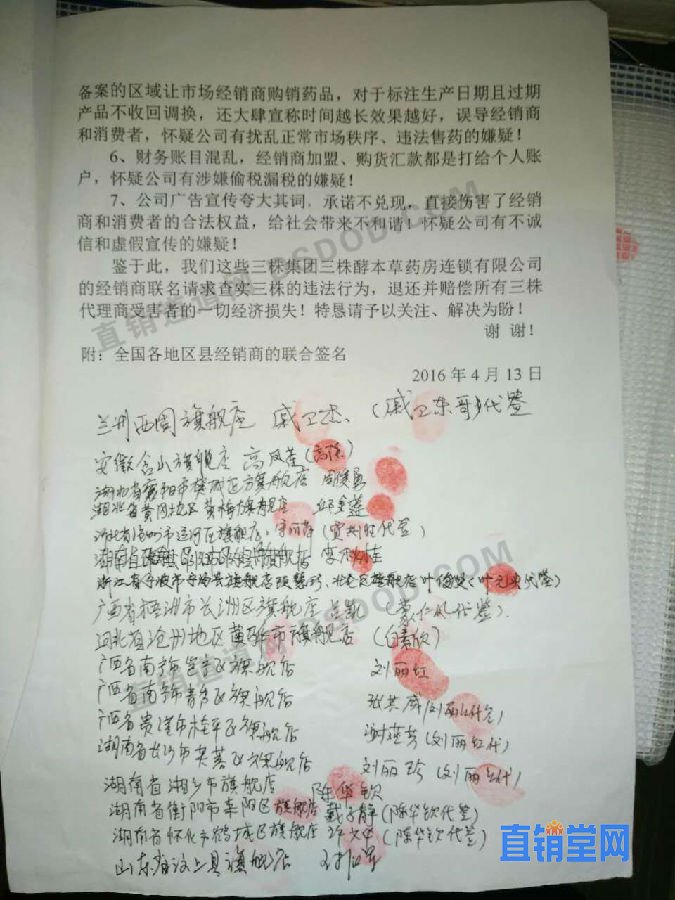 备案的区域让市场经销商购销药品，对于标注生产日期且过期
产品不收回调换，还大肆宣称时间越长效果越好，误导经销商
和消费者，怀疑公司有扰乱正常市场秩序、违法售药的嫌疑！
6、财务账目混乱，经销商加盟、购货汇款都是打给个人账
户，怀疑公司有涉嫌偷税漏税的嫌疑！
7、公司广告宣传夸大其词，承诺不兑现，直接伤害了经销
商和消费者的合法权益，给社会带来不和谐！怀疑公司有不诚
信和虚假宣传的嫌疑！
鉴于此，我们这些三株集团三株酵本草药房连锁有限公司
的经销商联名请求查实三株的违法行为，退还并赔偿所有三株
代理商受害者的一切经济损失！特恳请予以关注、解决为盼！
谢 谢！
附：全国各地区县经销商的联合签名
2016 年 4 月 13 日
兰州西固旗舰店 戚卫杰、（戚卫东哥代签
安徽含山旗舰店 高凤莲
湖北省襄阳市樊城区旗舰店
湖北省黄冈地区黄梅旗舰店
河北省沧州市运河区旗舰店
湖南省 旗舰店
浙江省宁波市 旗舰店
广西省梧州市长洲区旗舰店 代签）
河北省沧州地区黄骅市旗舰店
广西省南宁 区旗舰店 刘丽红
广西省南宁青秀区旗舰店 （刘丽红代）
广西省贵港市 区旗舰店 （刘丽红代）
湖南省长沙市芙蓉区旗舰店 刘丽珍（刘丽红代）
湖南省湘乡市旗舰店 陈华钦
湖南省衡阳市耒阳区旗舰店 戴子静（陈华钦代签）
湖南省怀化市鹤城区旗舰店 （陈华钦代签）
山东省汶上县旗舰店
直销道道网
直销堂网